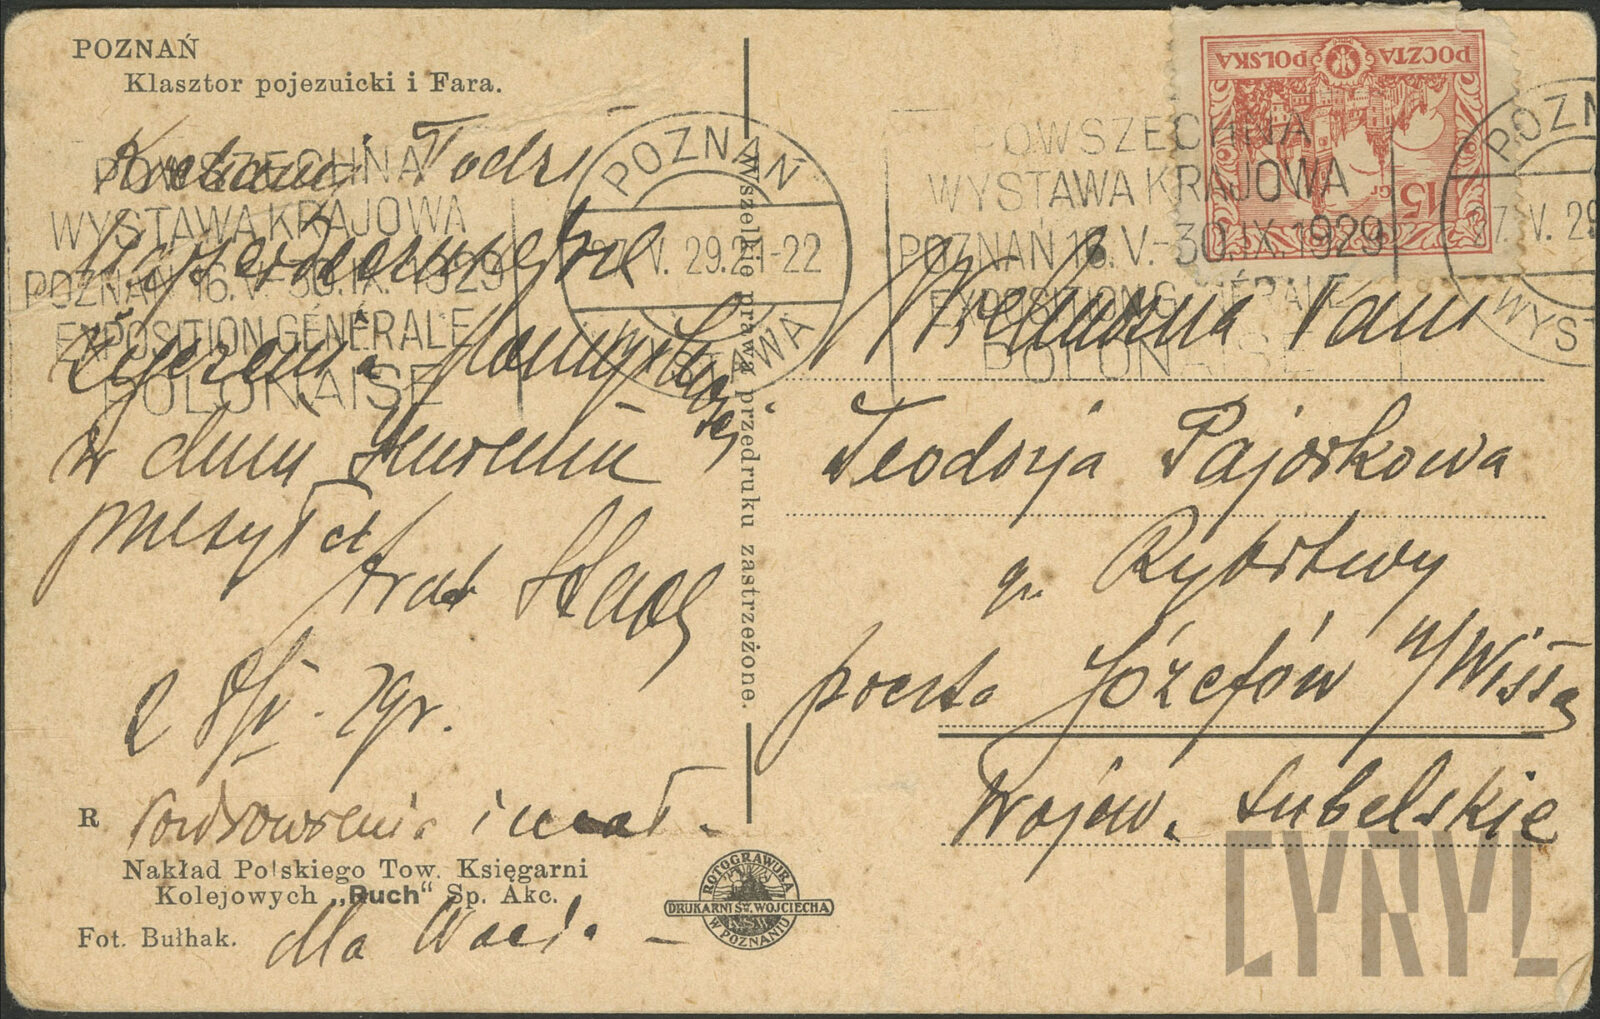 POZNAŃ
Klasztor pojezuicki i Fara.
Kochanej Todzi
Najserdeczniejsze
życzenia
w dniu Imienin
przesyła
brat
Pozdrowienia i
dla
R
Nakład Polskiego Tow. Księgarni
Kolejowych „Ruch“ Sp. Akc.
Fot. Bułhak.
Wszelkie prawa przedruku zastrzeżone.
ROTOGRAWURA
DRUKARNI ŚW. WOJCIECHA
W POZNANIU
POWSZECHNA
WYSTAWA KRAJOWA
POZNAŃ 16.V.-30.IX.1929
EXPOSITION GÉNÉRALE
POLONAISE
POZNAŃ
27.V.29.21-22
WYSTAWA
POWSZECHNA
WYSTAWA KRAJOWA
POZNAŃ 16.V.-30.IX.1929
EXPOSITION GÉNÉRALE
POLONAISE
POCZTA POLSKA
15 GR
POZN
27.V.29
WYST
Wielmożna Pani
Teodozja Pajórkowa
w. Rybitwy
poczta Józefów n/Wisłą
Wojew. Lubelskie
CYRYL